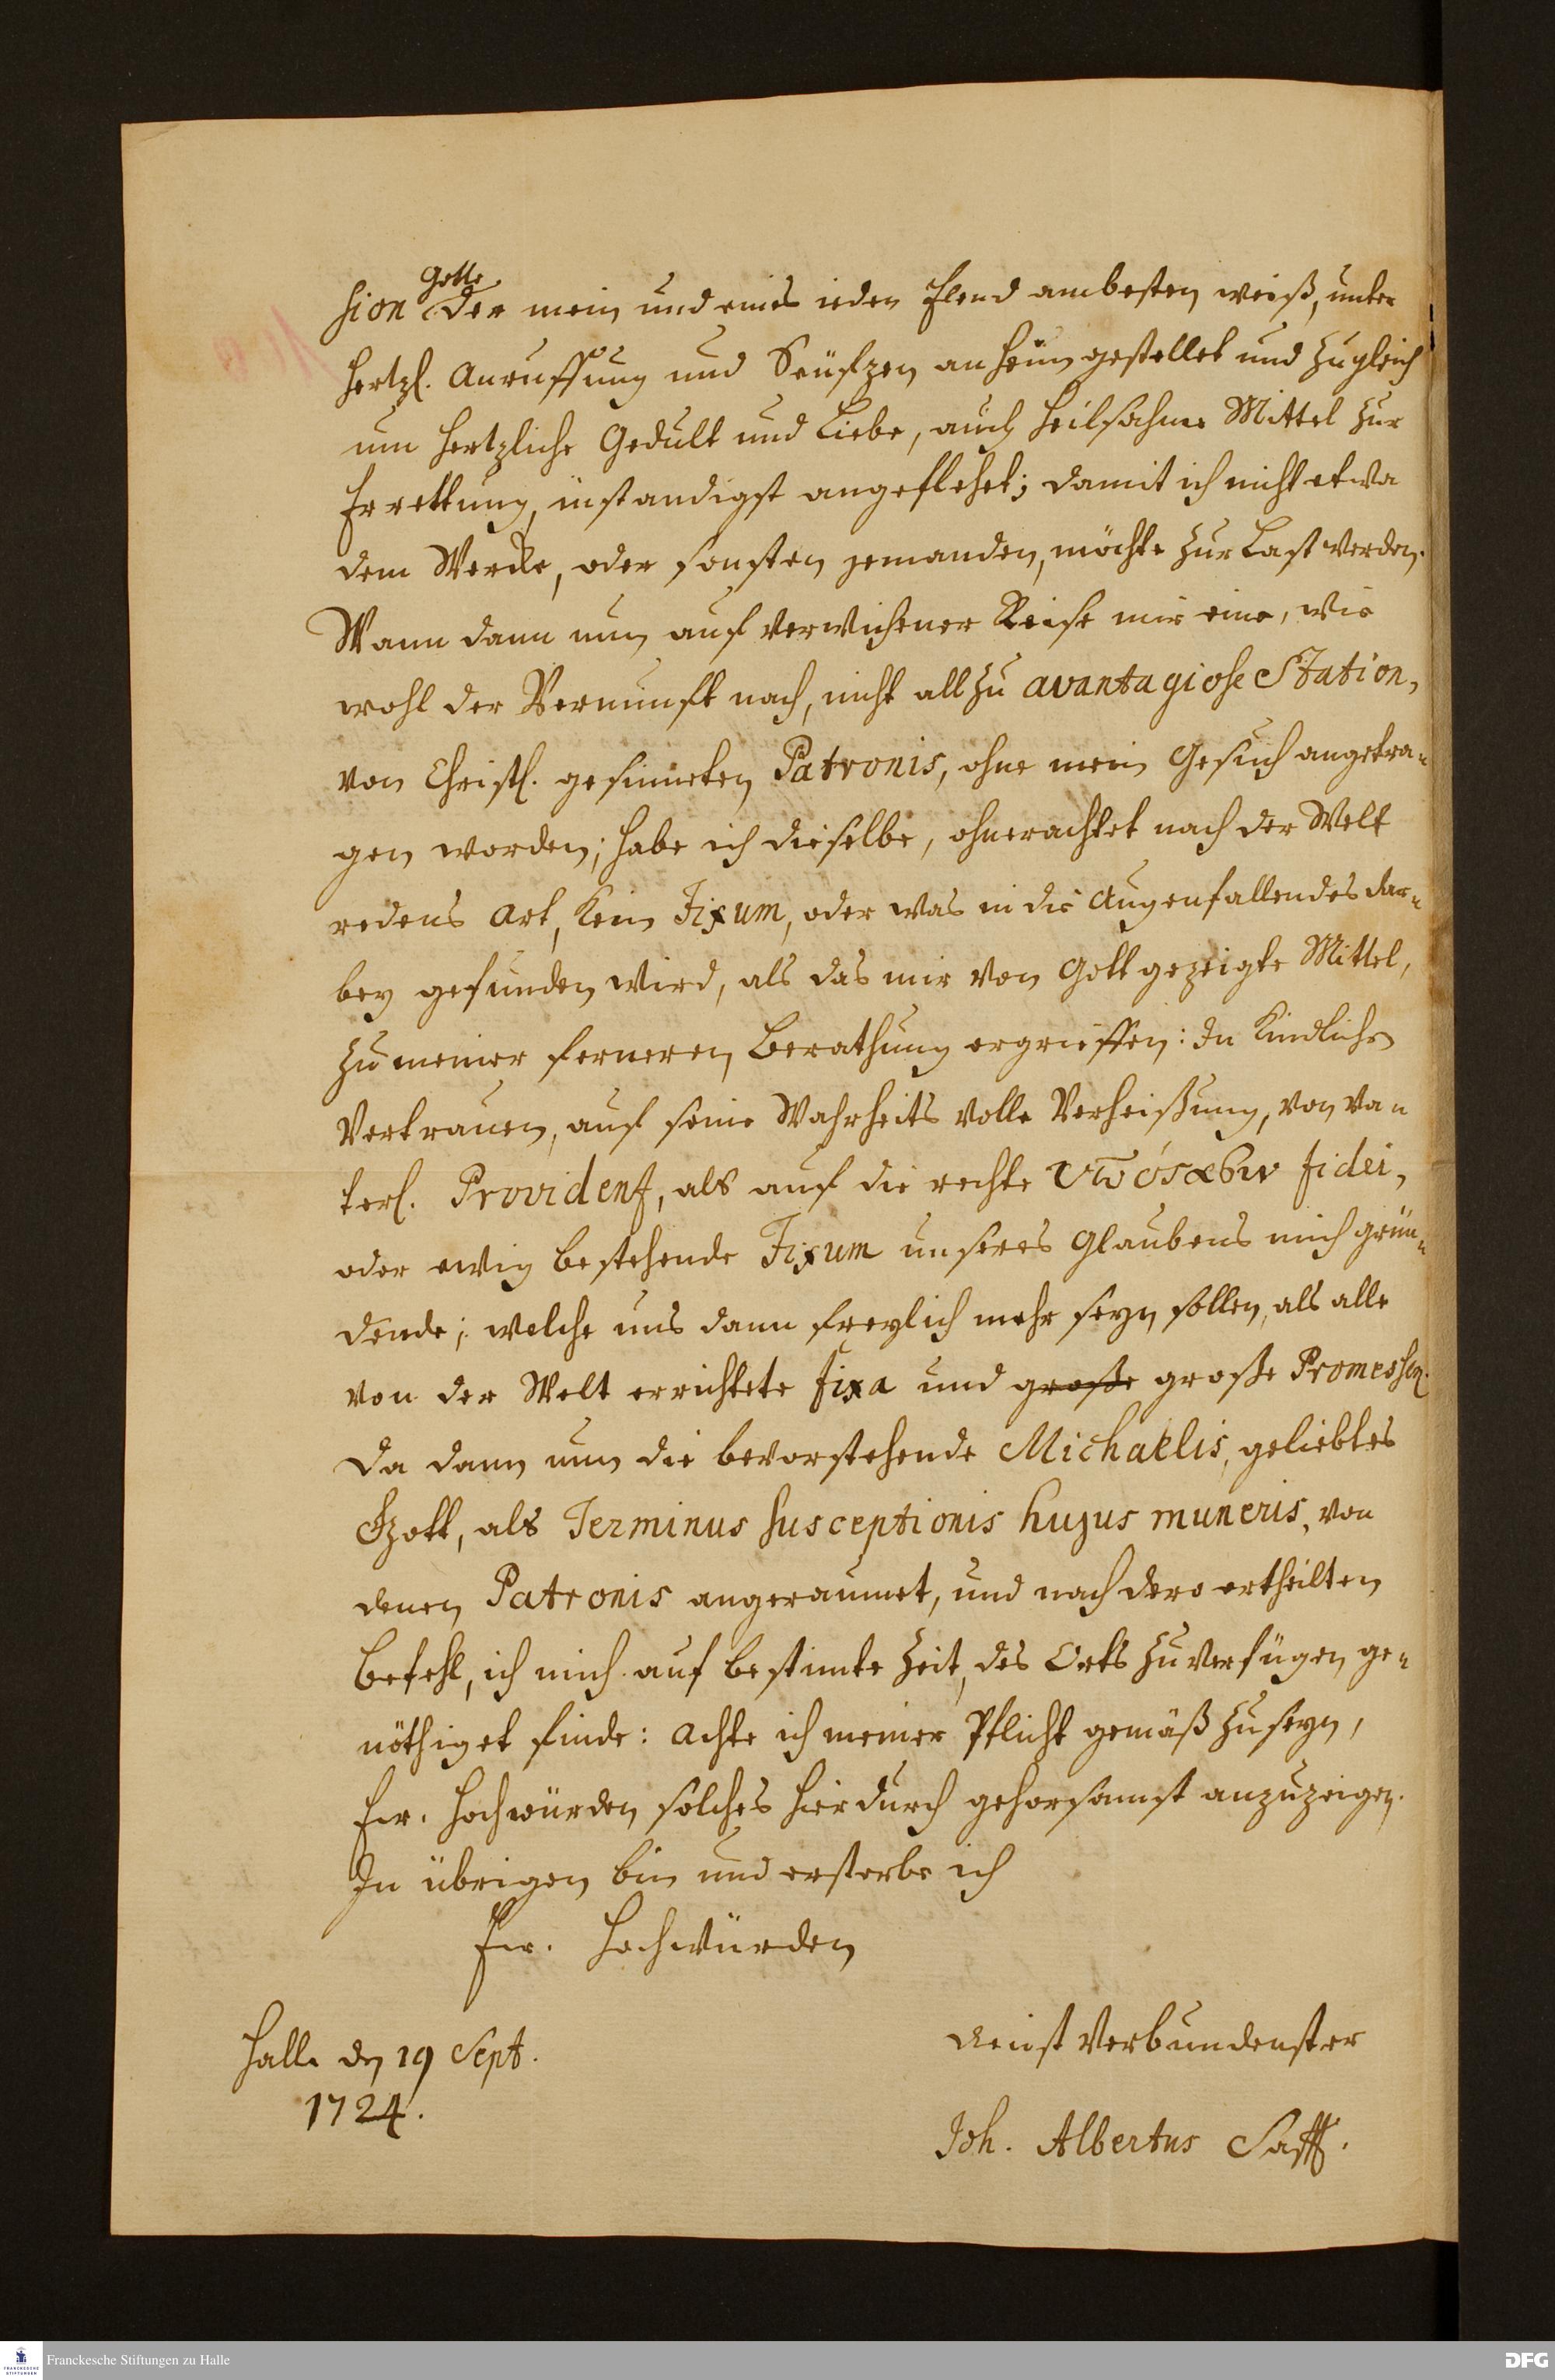 Gotte
sion der mein und eines ieden Elend am besten weiß, unter
hertzl. Anruffung und Seüfzen anheim gestellet und zugleich
um hertzliche Gedult und Liebe, auch heilsahme Mittel zur
Errettung, instandigst angeflehet; damit ich nicht etwa
dem Wercke, oder sonsten jemanden, möchte zur Last werden.
Wann dann nun auf verwichener Reise mir eine, wie
wohl der Vernunft nach, nicht allzu avantagiose Station,
von Christl. gesinneten Patronis, ohne mein Gesuch angetra-
gen worden; habe ich dieselbe, ohnerachtet nach der Welt
redens Art, kein Fixum, oder was in die Augenfallendes dar-
bey gefunden wird, als das mir von Gott gezeigte Mittel,
zu meiner ferneren Berathung ergrieffen: In kindliche
Vertrauen, auf seine Wahrheits volle Verheißung, von vä-
terl. Providenz, als auf die rechte ὑπόστασιν fidei,
oder ewig bestehende Fixum unseres Glaubens mich grün-
dende; welche uns dann freylich mehr seyn sollen, als alle
von der Welt errichtete fixa und große große Promessen.
Da dann nun die bevorstehende Michaelis, geliebtes
Gott, als Terminus susceptionis hujus muneris, von
denen Patronis angeraumet, und nach dero ertheilten
Befehl, ich mich auf bestimte Zeit, des Orts zu verfügen ge-
nöthiget finde: achte ich meiner Pflicht gemäß zu seyn,
Ew. Hochwürden solches hierdurch gehorsamst anzuzeigen.
In übrigen bin und ersterbe ich
Ew. Hochwürden
Halle den 19 Sept.
1724.
dienst verbundenster
Joh. Albertus
Franckesche Stiftungen zu Halle
FRANCKESCHE STIFTUNGEN
DFG